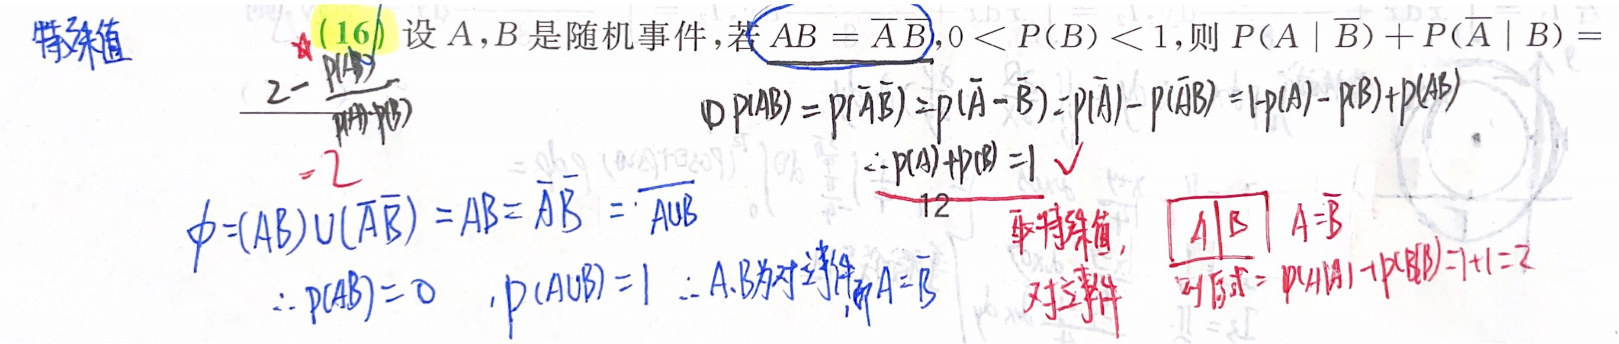 特殊值
(16) 设 A,B 是随机事件,若 AB = A̅ B̅, 0 < P(B) < 1, 则 P(A | B̅) + P(A̅ | B) =
2 - P(AB) / P(A)·P(B)
= 2
① P(AB) = P(A̅B̅) = P(A̅ - B) = P(A̅) - P(A̅B) = 1-P(A) - P(B) + P(AB)
∴ P(A)+P(B) = 1 ✓
12
φ = (AB)∪(A̅B̅) = AB = A̅B̅ = \overline{A∪B}
∴ P(AB) = 0 , P(A∪B) = 1 ∴ A.B为对立事件, 即 A = B̅
取特殊值,
对立事件
A | B A = B̅
则原式 = P(A|A) + P(B|B) = 1+1 = 2